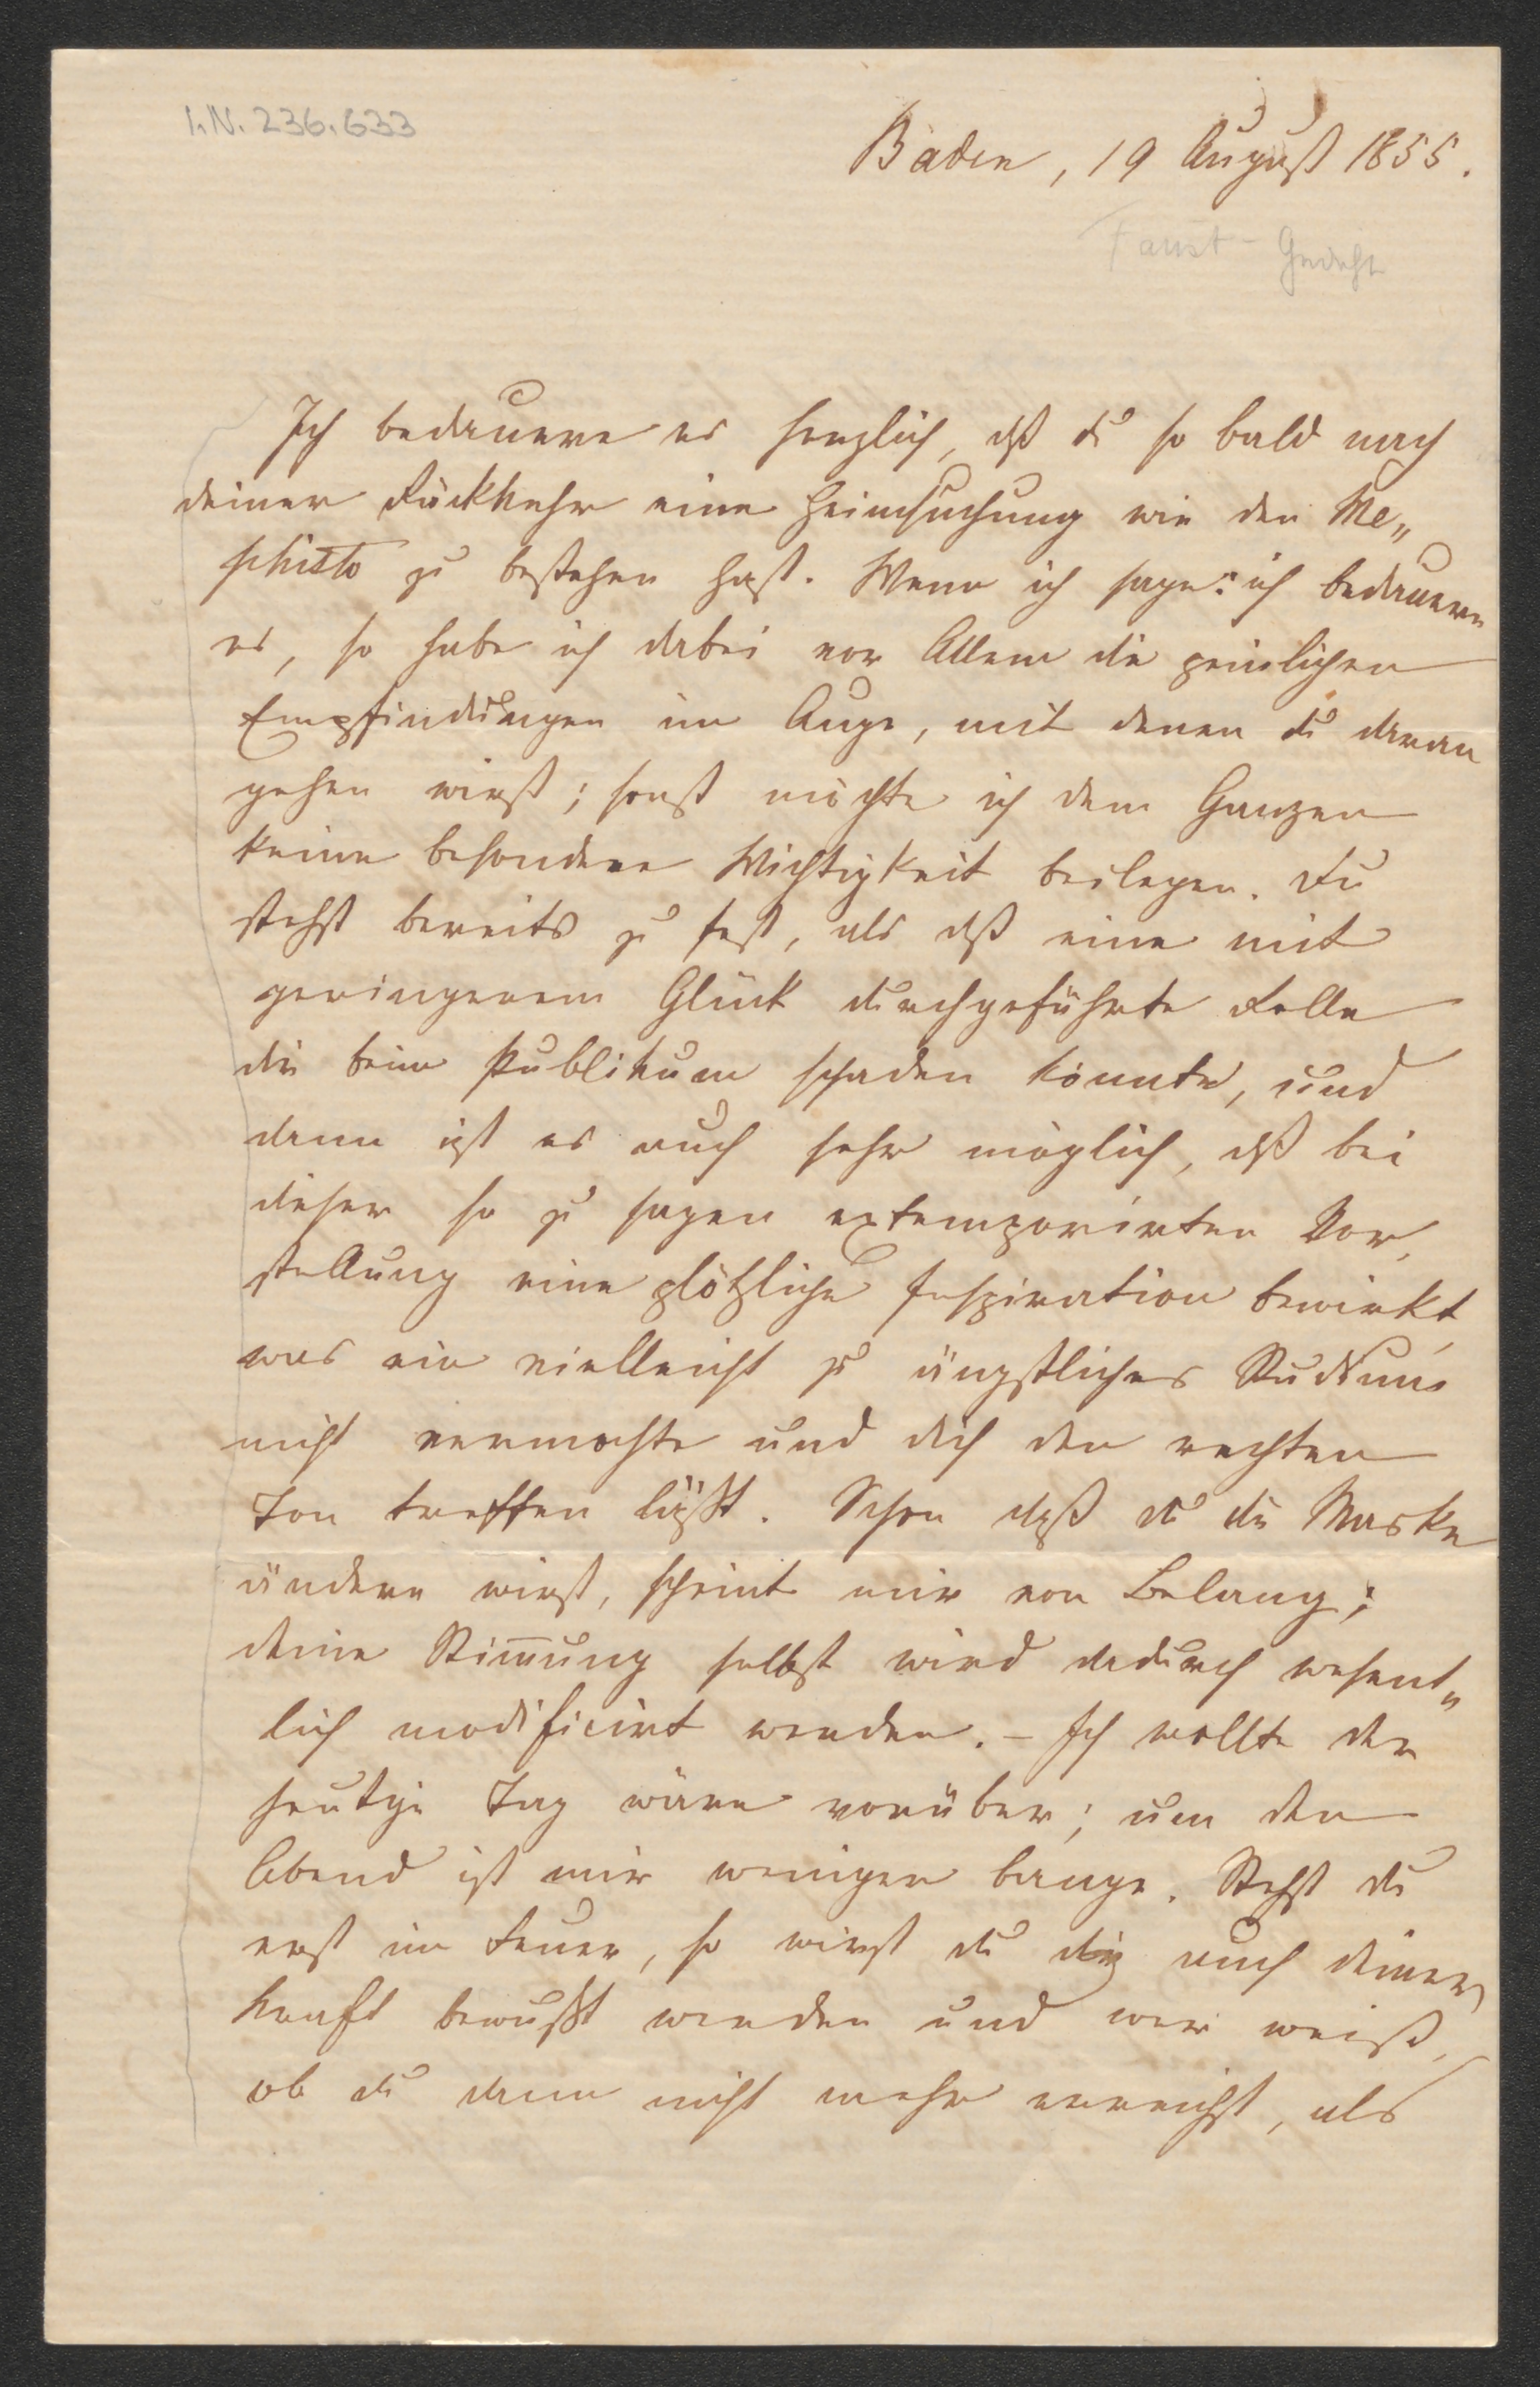 I.N. 236.633
Baden, 19 August 1855.
Faust-Gedicht
Ich bedauere es herzlich, dß du so bald nach
deiner Rückkehr eine Heimsuchung wie den Me„
phisto zu bestehen hast. Wenn ich sage: ich bedauere
es, so habe ich dabei vor Allem die peinlichen
Empfindungen im Auge, mit denen du daran
gehen wirst; sonst möchte ich dem Ganzen
keine besondere Wichtigkeit beilegen. Du
stehst bereits zu fest, als dß eine mit
geringerem Glück durchgeführte Rolle
dir beim Publikum schaden könnte, und
dann ist es auch sehr möglich, dß bei
dieser so zu sagen extemporirten Vor„
stellung eine plötzliche Inspiration bewirkt,
was ein vielleicht zu ängstliches Studium
nicht vermochte und dich den rechten
Ton treffen läßt. Schon daß du die Maske
ändern wirst, scheint mir von Belang;
deine Stim̅ung selbst wird dadurch wesent„
lich modificirt werden. – Ich wollte der
heutige Tag wäre vorüber; um den
Abend ist mir weniger bange. Stehst du
erst im Feuer, so wirst du dir auch deiner
Kraft bewußt werden und wer weiß,
ob du dann nicht mehr erreichst, als